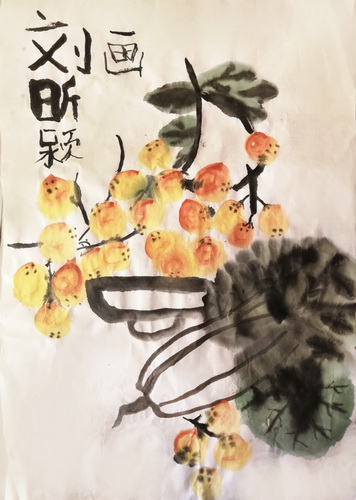 刘昕颖
画